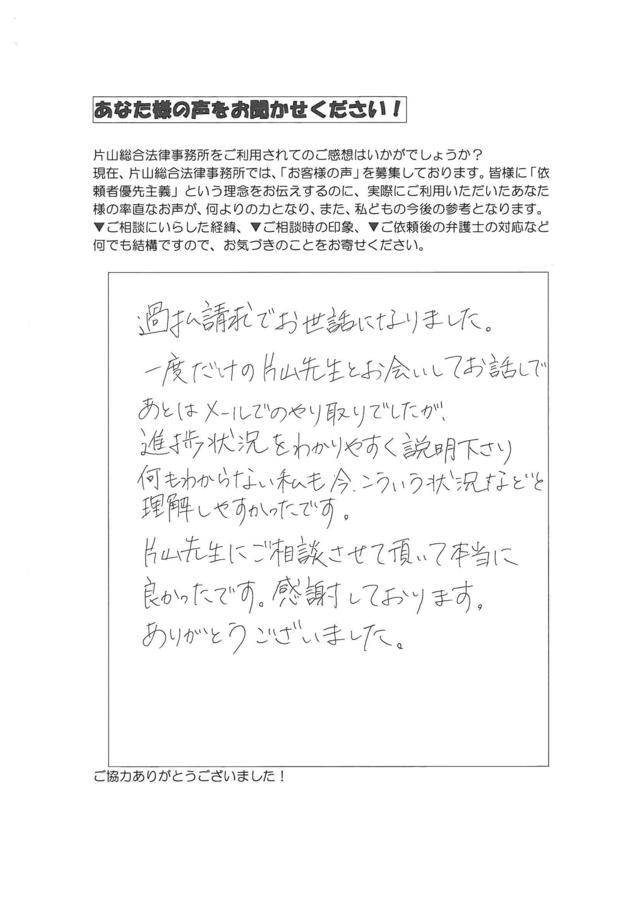 あなた様の声をお聞かせください！
片山総合法律事務所をご利用されてのご感想はいかがでしょうか？
現在、片山総合法律事務所では、「お客様の声」を募集しております。皆様に「依
頼者優先主義」という理念をお伝えするのに、実際にご利用いただいたあなた
様の率直なお声が、何よりの力となり、また、私どもの今後の参考となります。
▼ご相談にいらした経緯、▼ご相談時の印象、▼ご依頼後の弁護士の対応など
何でも結構ですので、お気づきのことをお寄せください。
過払請求でお世話になりました。
一度だけの片山先生とお会いしてお話しで
あとはメールでのやり取りでしたが、
進捗状況をわかりやすく説明下さり
何もわからない私も今、こういう状況などと
理解しやすかったです。
片山先生にご相談させて頂いて本当に
良かったです。感謝しております。
ありがとうございました。
ご協力ありがとうございました！